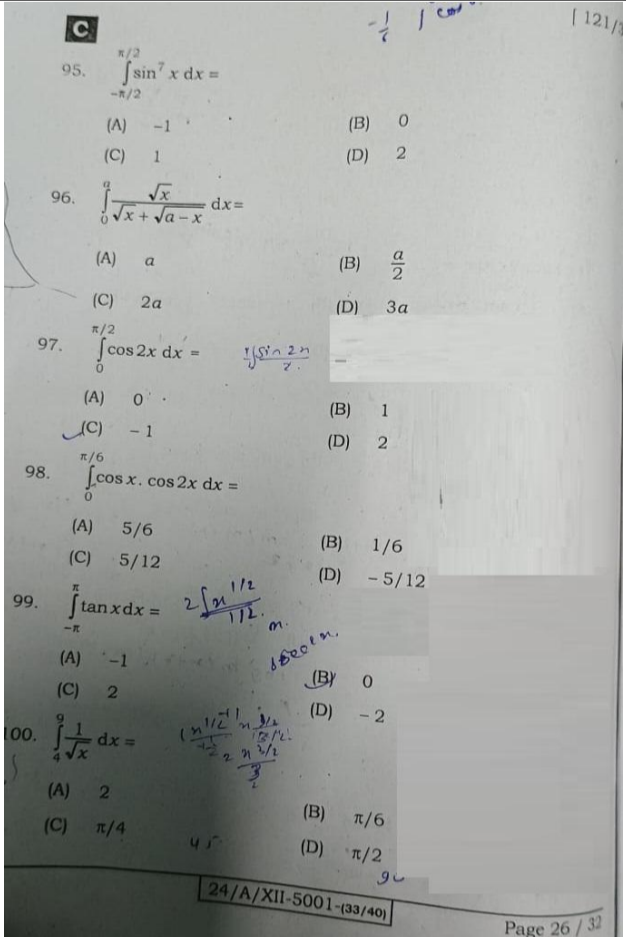 C
[ 121/
95. ∫_{-π/2}^{π/2} sin⁷ x dx =
(A) -1 (B) 0
(C) 1 (D) 2
96. ∫_0^a √x / (√x + √(a - x)) dx=
(A) a (B) a/2
(C) 2a (D) 3a
97. ∫_0^{π/2} cos 2x dx = sin 2x
(A) 0 (B) 1
(C) - 1 (D) 2
98. ∫_0^{π/6} cos x. cos 2x dx =
(A) 5/6 (B) 1/6
(C) 5/12 (D) - 5/12
99. ∫_{-π}^{π} tan x dx = 2∫ x^{1/2} / 1/2
(A) -1 (B) 0
(C) 2 (D) - 2
100. ∫_4^9 1/√x dx =
(A) 2 (B) π/6
(C) π/4 (D) π/2
24/A/XII-5001-(33/40)
Page 26 / 32